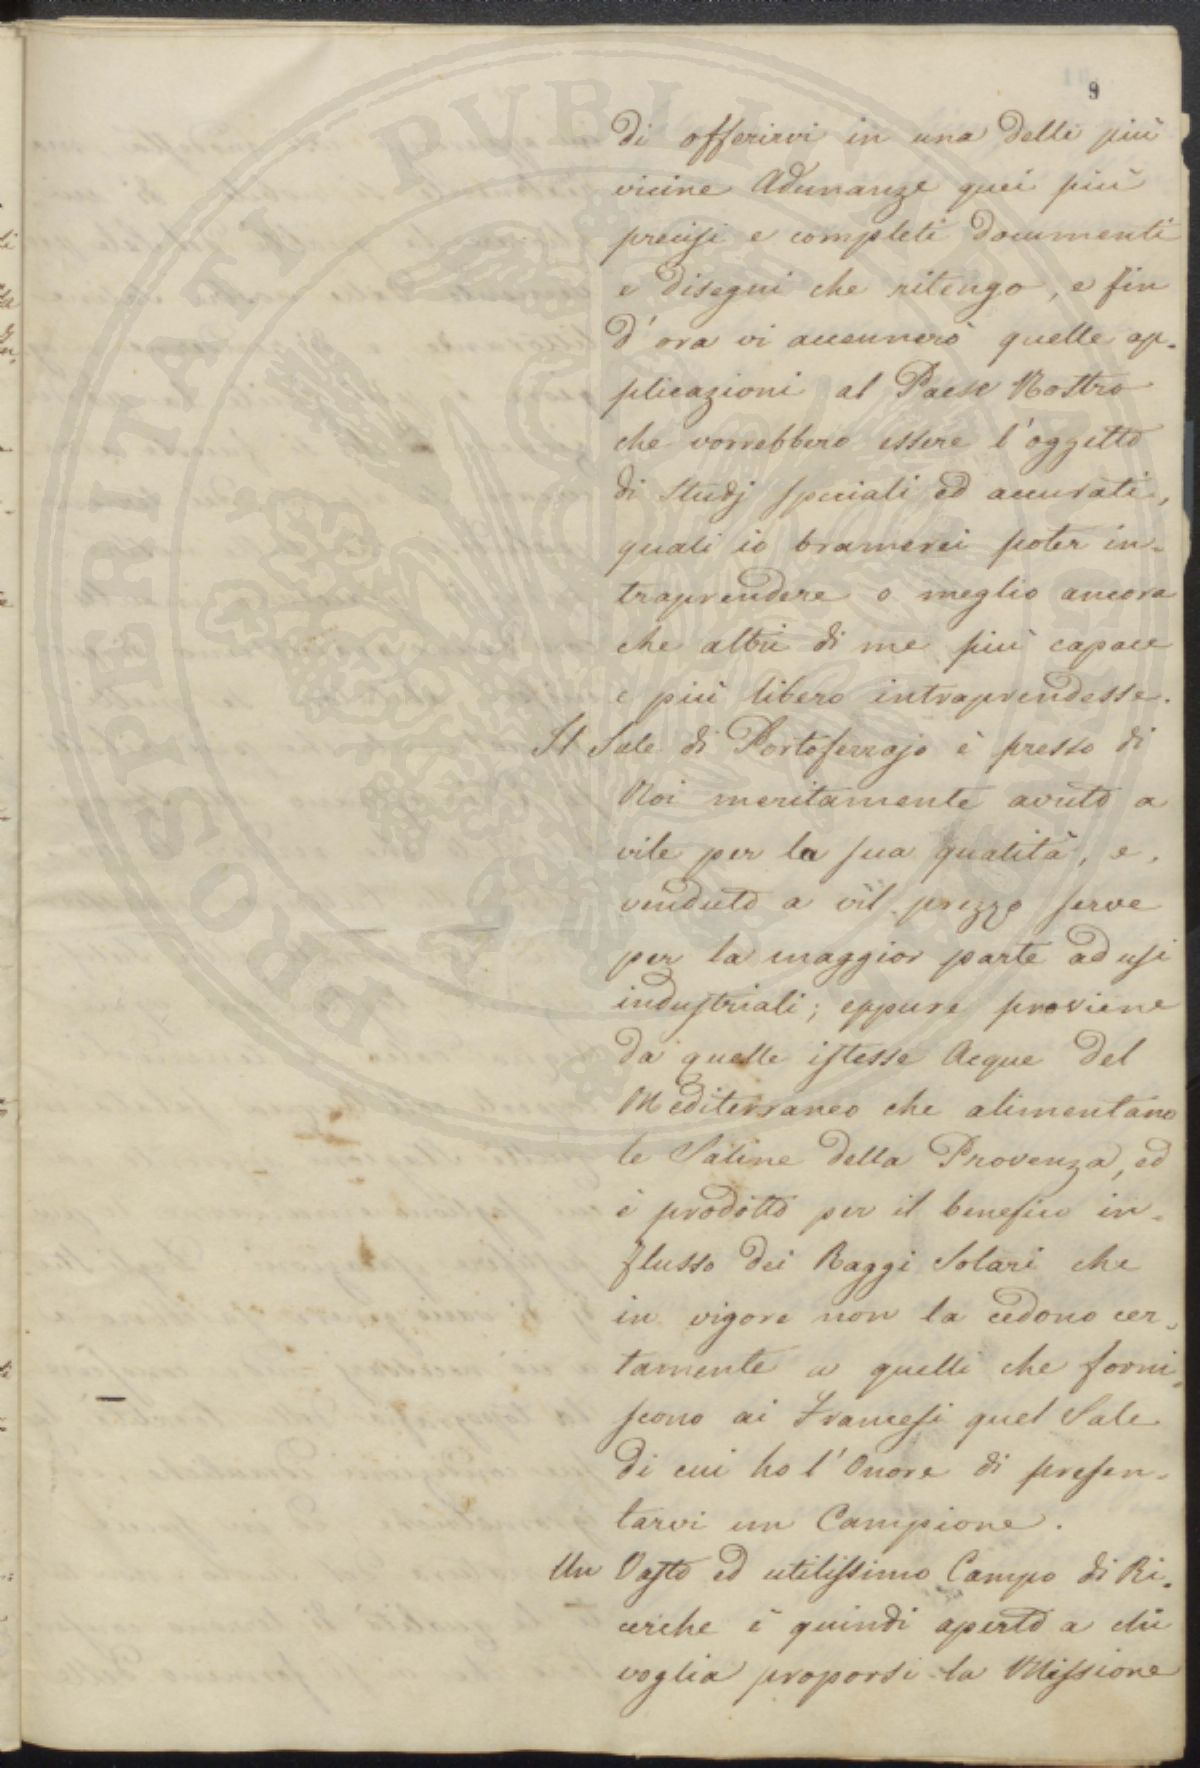 9
di offerirvi in una delle più
vicine Adunanze quei più
precisi e completi documenti
e disegni che ritengo, e fin
d'ora vi accennerò quelle ap-
plicazioni al Paese Nostro
che vorrebbero essere l'oggetto
di Studj speciali ed accurati,
quali io bramerei poter in-
traprendere o meglio ancora
che altri di me più capace
e più libero intraprendesse.
Il Sale di Portoferrajo è presso di
Noi meritamente avuto a
vile per la sua qualità, e,
venduto a vil prezzo serve
per la maggior parte ad usi
industriali; eppure proviene
da quelle istesse Acque del
Mediterraneo che alimentano
le Saline della Provenza, ed
è prodotto per il benefico in-
flusso dei Raggi Solari che
in vigore non la cedono cer-
tamente a quelli che forni-
scono ai Francesi quel Sale
di cui ho l'Onore di presen-
tarvi un Campione.
Un Vasto ed utilissimo Campo di Ri-
cerche è quindi aperto a chi
voglia proporsi la Missione
PROSPERITATI PUBLICAE